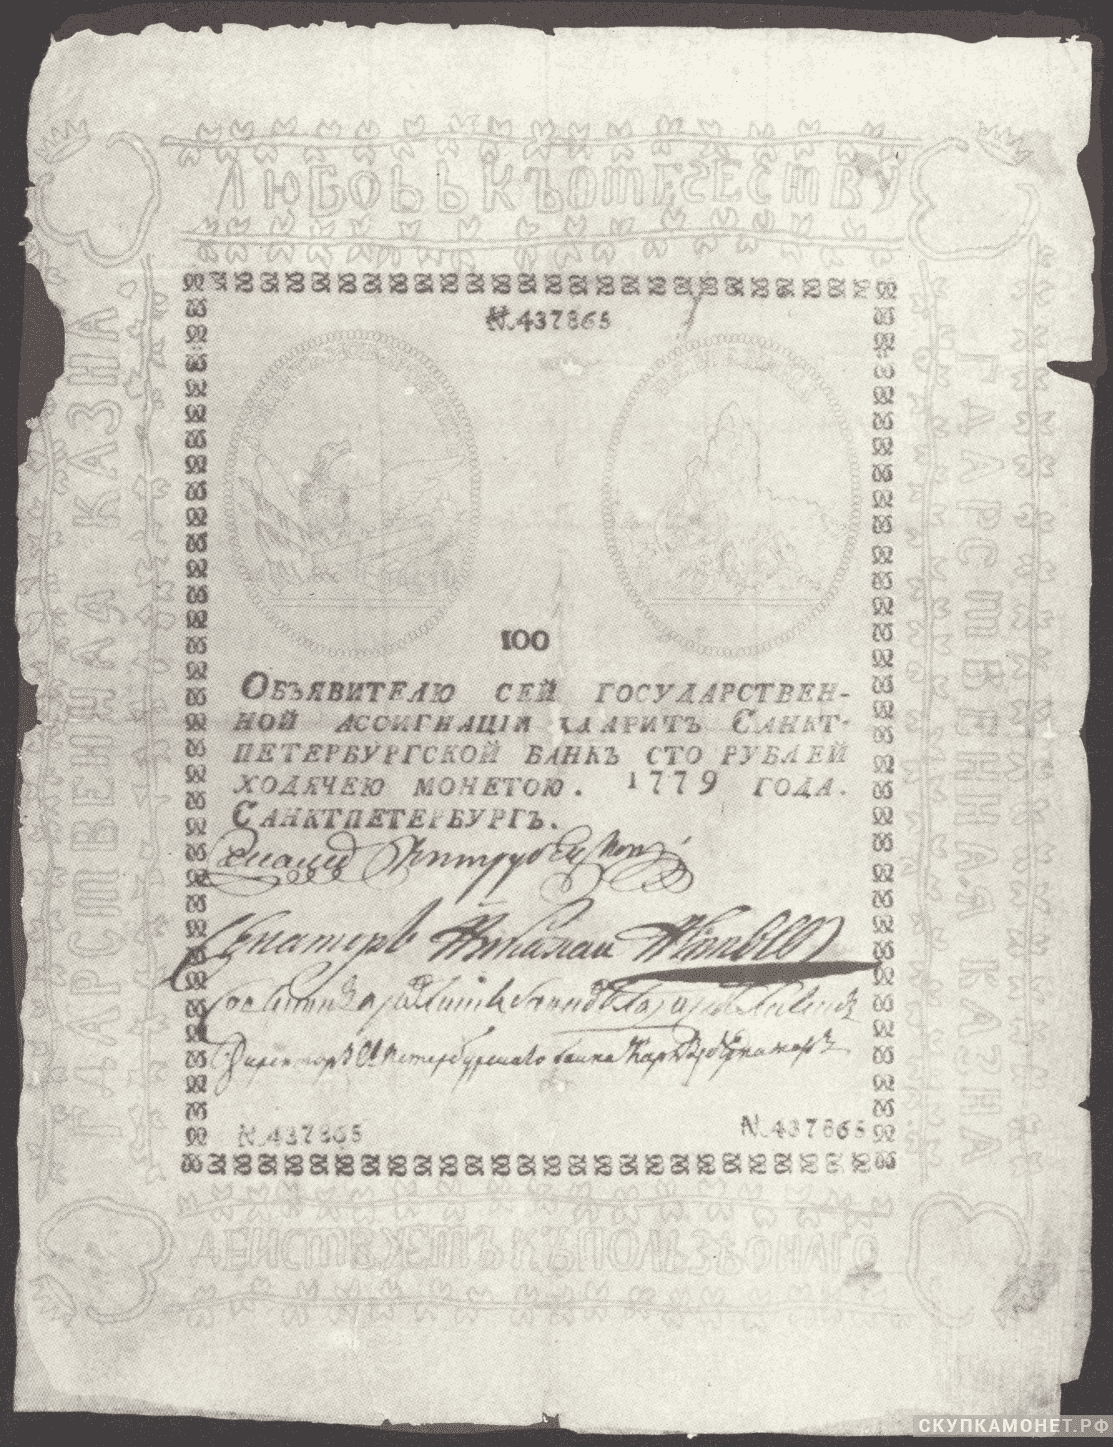 ЛЮБОВЬ КЪ ОТЕЧЕСТВУ
ГДАРСТВЕННАЯ КАЗНА
ГДАРСТВЕННАЯ КАЗНА
N.437865
100
ОБЪЯВИТЕЛЮ СЕЙ ГОСУДАРСТВЕН-
НОЙ АССИГНАЦІИ ПЛАТИТЪ САНКТ-
ПЕТЕРБУРГСКОЙ БАНКЪ СТО РУБЛЕЙ
ХОДЯЧЕЮ МОНЕТОЮ. 1779 ГОДА.
САНКТПЕТЕРБУРГЪ.
Сенаторъ Николай
Директоръ С Петербурскаго банка Карлъ
N.437865 N.437865
ДЕИСТВУЕТЪ КЪ ПОЛЬЗѢ ОНАГО
СКУПКАМОНЕТ.РФ